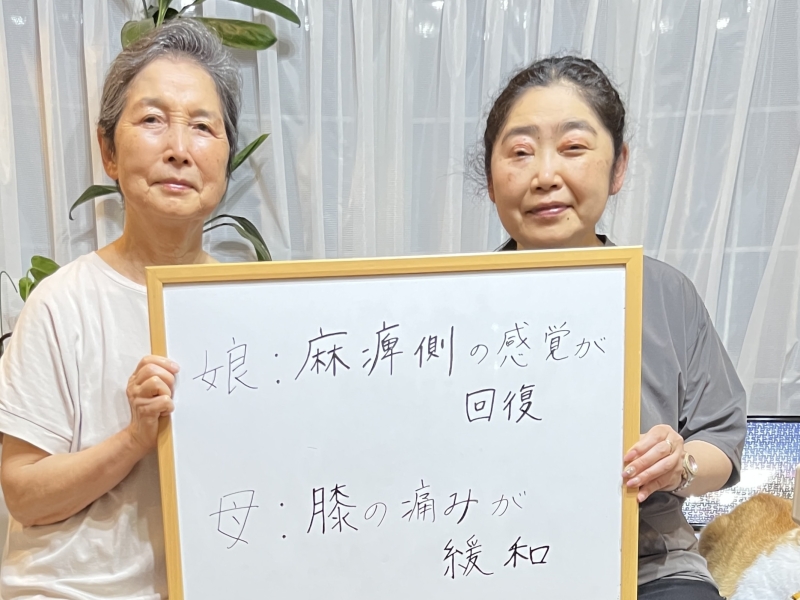 娘：麻痺側の感覚が
回復
母：膝の痛みが
緩和